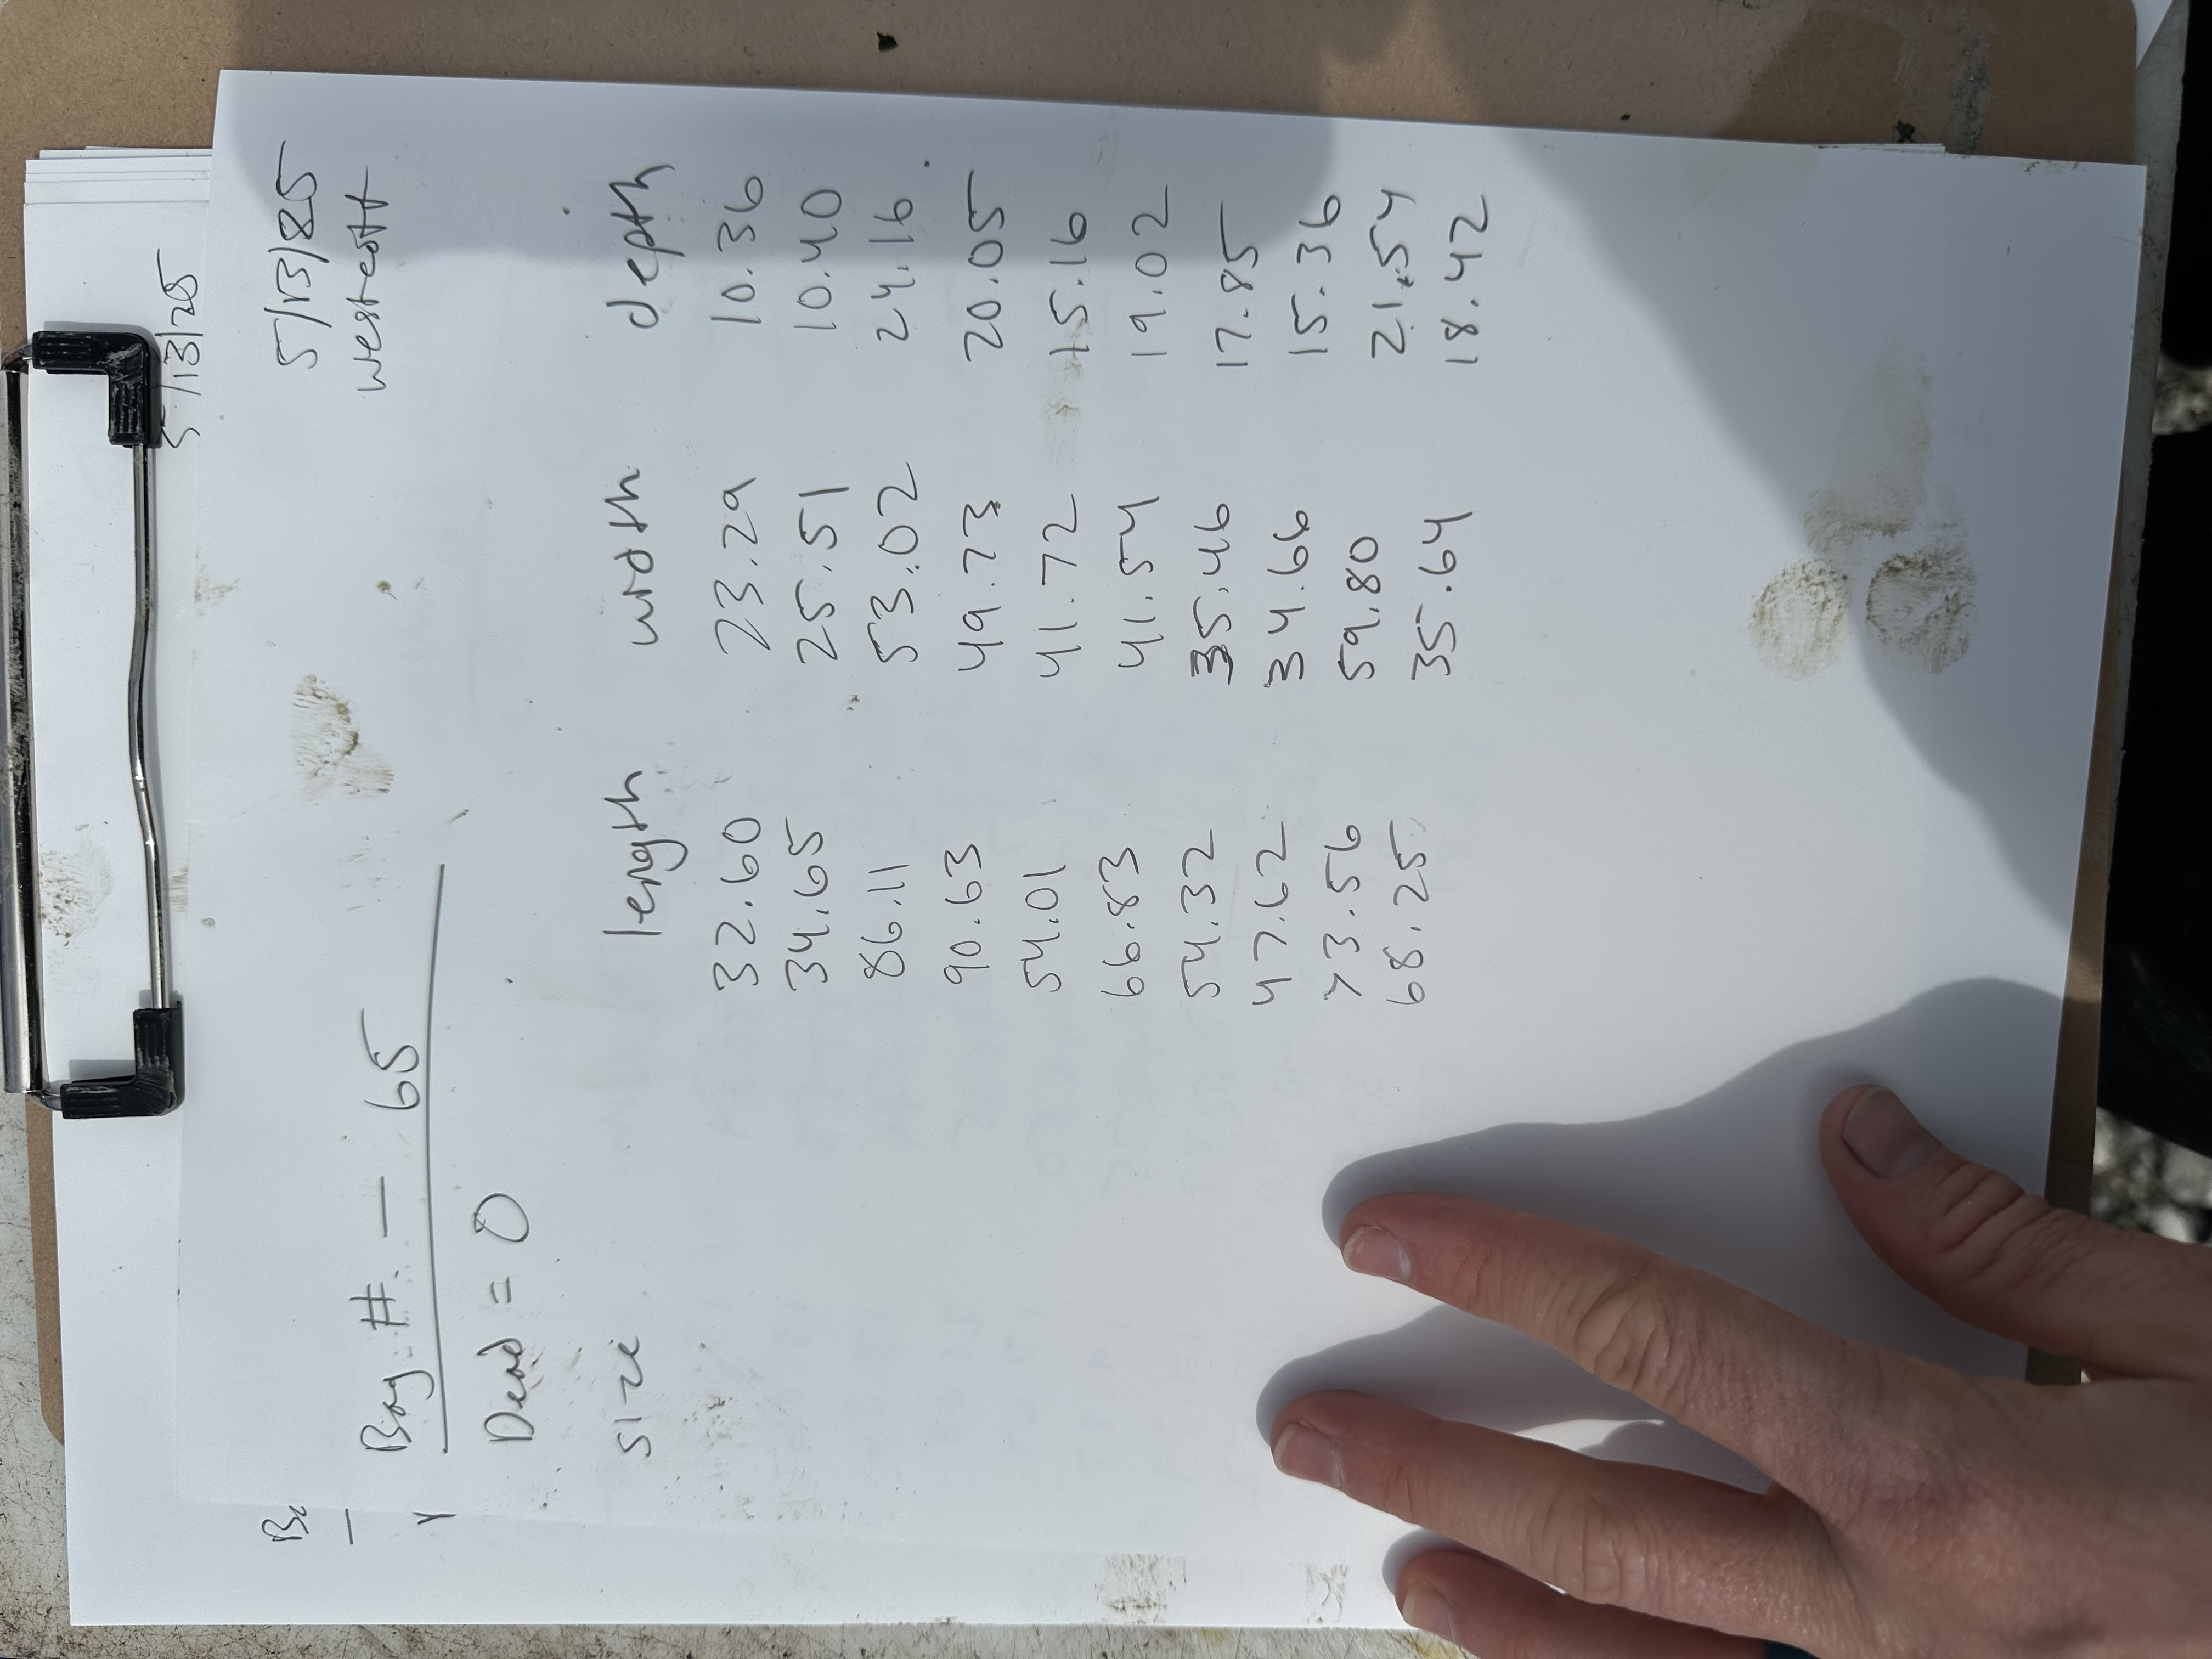 5/13/25
Bo
5/13/25
Westcott
Bag # — 65
Dead = 0
size length width depth
32.60 23.29 10.36
34.65 25.51 10.40
86.11 53.02 24.16
90.63 49.73 20.05
54.01 41.72 15.16
66.83 41.54 19.02
54.32 35.46 17.85
47.62 34.66 15.36
73.56 59.80 21.54
68.25 35.64 18.42